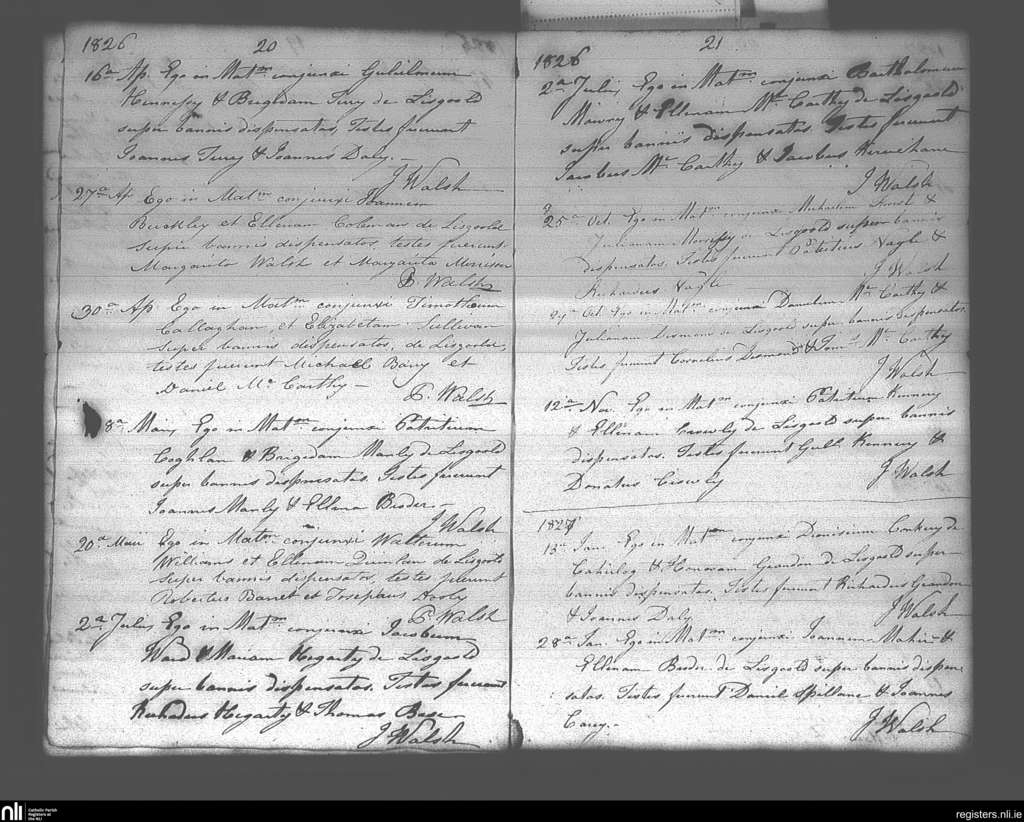 1826 20
16a Ap. Ego in Matm conjunxi Gulielmum
Hennessy & Brigidam Terry de Lisgoold
super bannis dispensatos, Testes fuerunt
Joannes Terry & Joannes Daly. —
J Walsh
27a Ap Ego in Matm conjunxi Joannem
Buckley et Ellenam Coleman de Lisgoolde
super bannis dispensatos, testes fuerunt
Margarita Walsh et Margarita Morrison
P. Walsh
30a Ap Ego in Matm conjunxi Timotheum
Callaghan, et Elizabetam Sullivan
super bannis dispensatos, de Lisgoolde,
testes fuerunt Michael Barry et
Daniel Mc Carthy —
P. Walsh
8a Maii Ego in Matm conjunxi Patritium
Coghlan & Brigidam Manly de Lisgoold
super bannis dispensatos. Testes fuerunt
Joannes Manly & Ellena Broder.
J Walsh
20a Maii Ego in Matm conjunxi Walterum
Williams et Ellenam Quinlan de Lisgoold
super bannis dispensatos, testes fuerunt
Robertus Barret et Josephus
P. Walsh
2a Julii Ego in Matm conjunxi Jacobum
Ward & Mariam Hegarty de Lisgoold
super bannis dispensatos. Testes fuerunt
Richardus Hegarty & Thomas
J Walsh
21
1826
2a Julii Ego in Matm conjunxi Bartholomeum
& Ellenam Mc Carthy de Lisgoold
super bannis dispensatos. Testes fuerunt
Jacobus Mc Carthy & Jacobus
J Walsh
25a Oct. Ego in Matm conjunxi Michaelem &
Julianam Hennessy de Lisgoold super bannis
dispensatos. Testes fuerunt Patritius Nagle &
Richardus Nagle
J Walsh
29a Oct. Ego in Matm. conjunxi Danielem Mc Carthy &
Julianam Desmond de Lisgoold super bannis dispensatos.
Testes fuerunt Cornelius Desmond & Mc Carthy
J Walsh
12a Nov. Ego in Matm conjunxi Patritium Kenney
& Ellenam Crowly de Lisgoold super bannis
dispensatos. Testes fuerunt Gull Kenney &
Donatus
J Walsh
1827
13a Jan. Ego in Matm conjunxi Dionisium Conkery de
& Honoram Geardon de Lisgoold super
bannis dispensatos. Testes fuerunt Richardus Geardon
& Joannes Daly
J Walsh
28a Jan. Ego in Matm conjunxi Joannem Maher &
Ellenam Broder de Lisgoold super bannis dispen-
satos. Testes fuerunt Daniel Spillane & Joannes
Carey. —
J Walsh
nli
Catholic Parish
Registers at
the NLI
registers.nli.ie